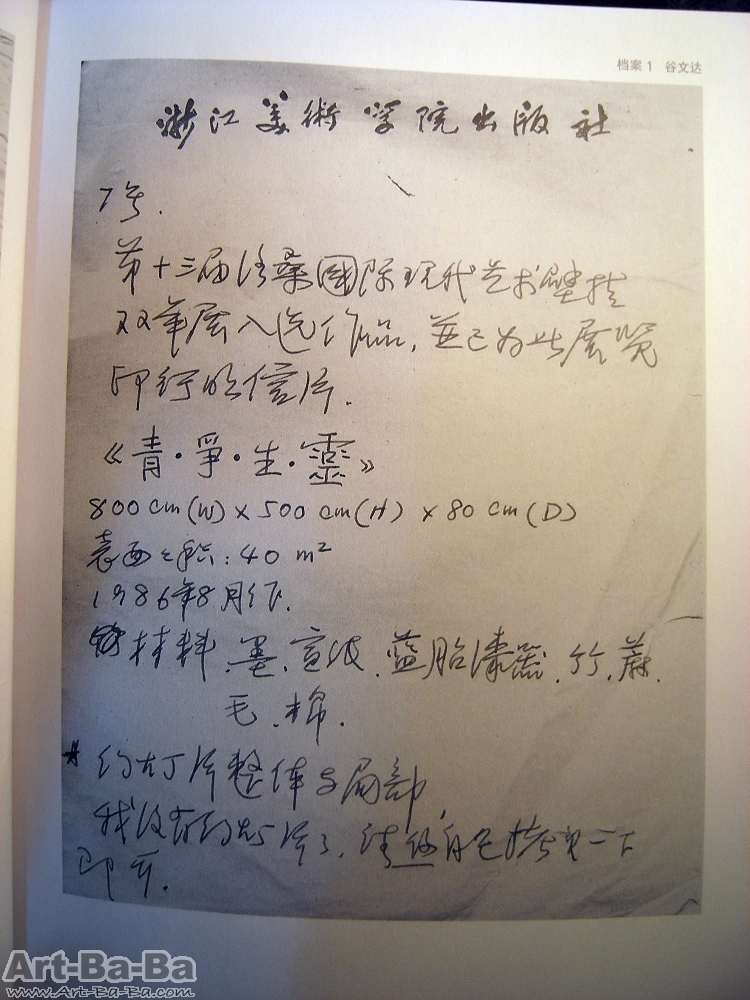 档案 1 谷文达
浙江美術学院出版社
7号.
第十三届洛桑國际现代艺术壁挂
双年展入选作品,並已为此展览
印行明信片.
《青·爭·生·靈》
800 cm(W) × 500 cm(H) × 80 cm(D)
表面之积:40 m²
1986年8月作.
材料.墨.宣纸.蓝胎漆器.竹.蔴.
毛.棉.
* 幻灯片整体与局部,
我没有幻灯片了,请您自己拷贝一下
即可.
Art-Ba-Ba
www.Art-Ba-Ba.com